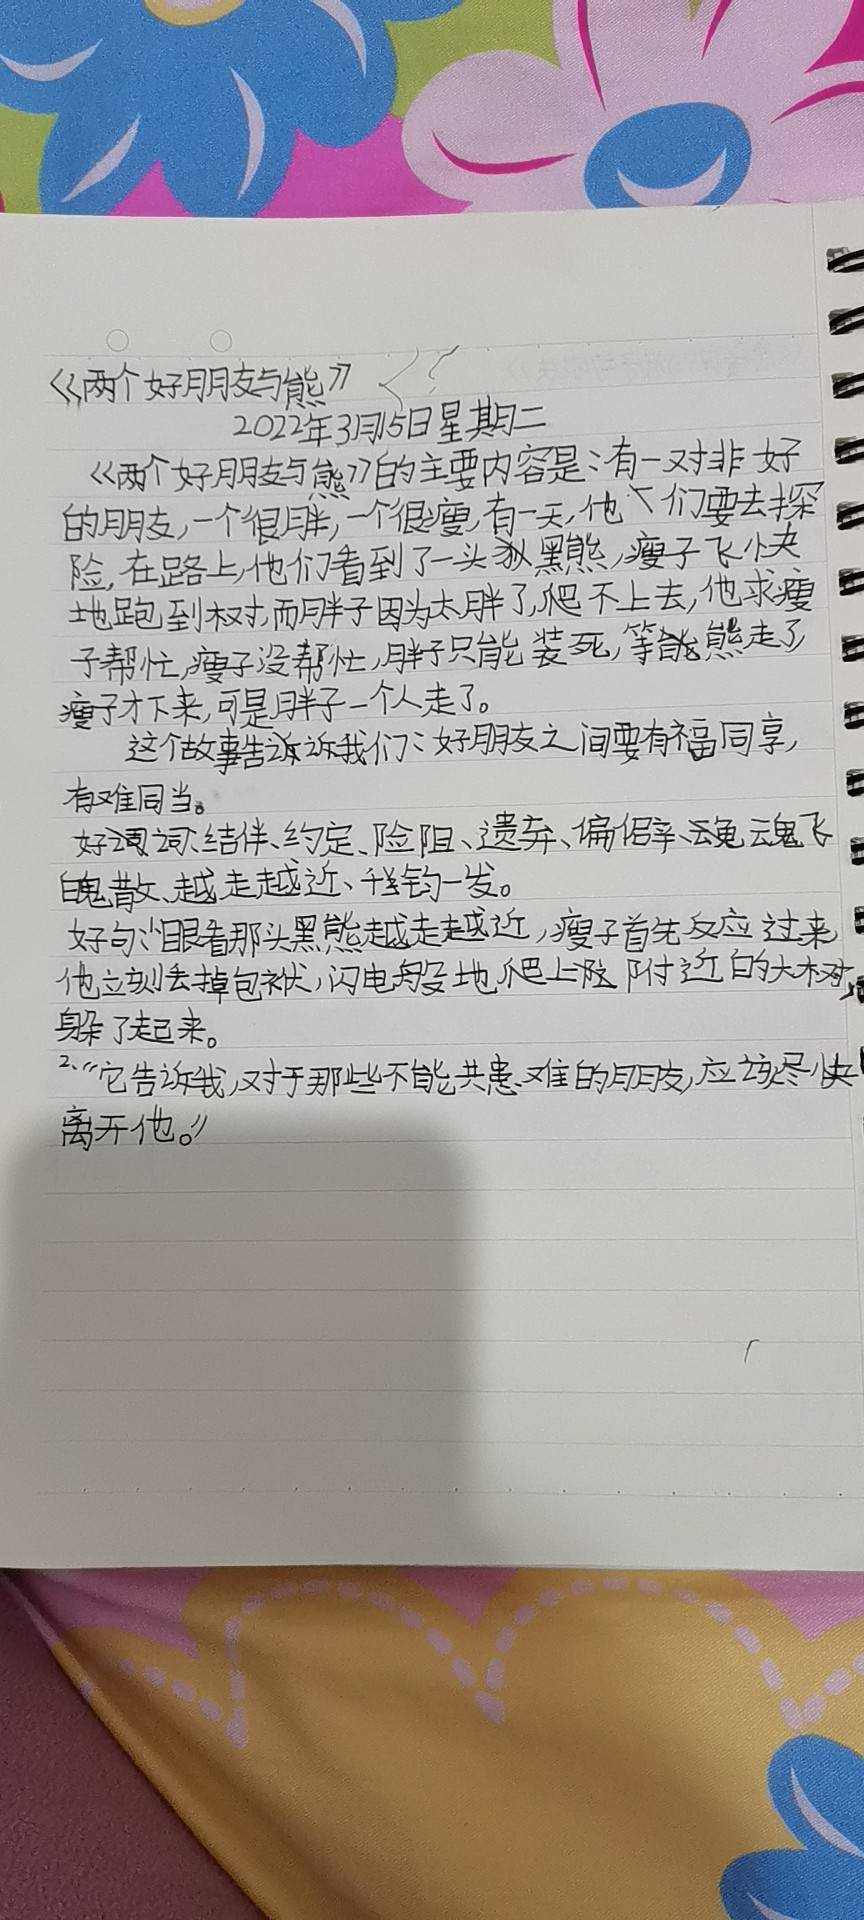 《两个好朋友与熊》
2022年3月15日星期二
《两个好朋友与熊》的主要内容是:有一对非好
的朋友,一个很胖,一个很瘦,有一天,他们要去探
险,在路上,他们看到了一头黑熊,瘦子飞快
地跑到树,而胖子因为太胖了,爬不上去,他求瘦
子帮忙,瘦子没帮忙,胖子只能装死,等熊走了
瘦子才下来,可是胖子一个人走了。
这个故事告诉诉我们:好朋友之间要有福同享,
有难同当。
好词词:结伴、约定、险阻、遗弃、偏僻、魂飞
魄散、越走越近、千钧一发。
好句:"眼看那头黑熊越走越近,瘦子首先反应过来
他立刻丢掉包袱,闪电般地爬上附近的大树,
躲了起来。
2."它告诉我,对于那些不能共患难的朋友,应该尽快
离开他。"